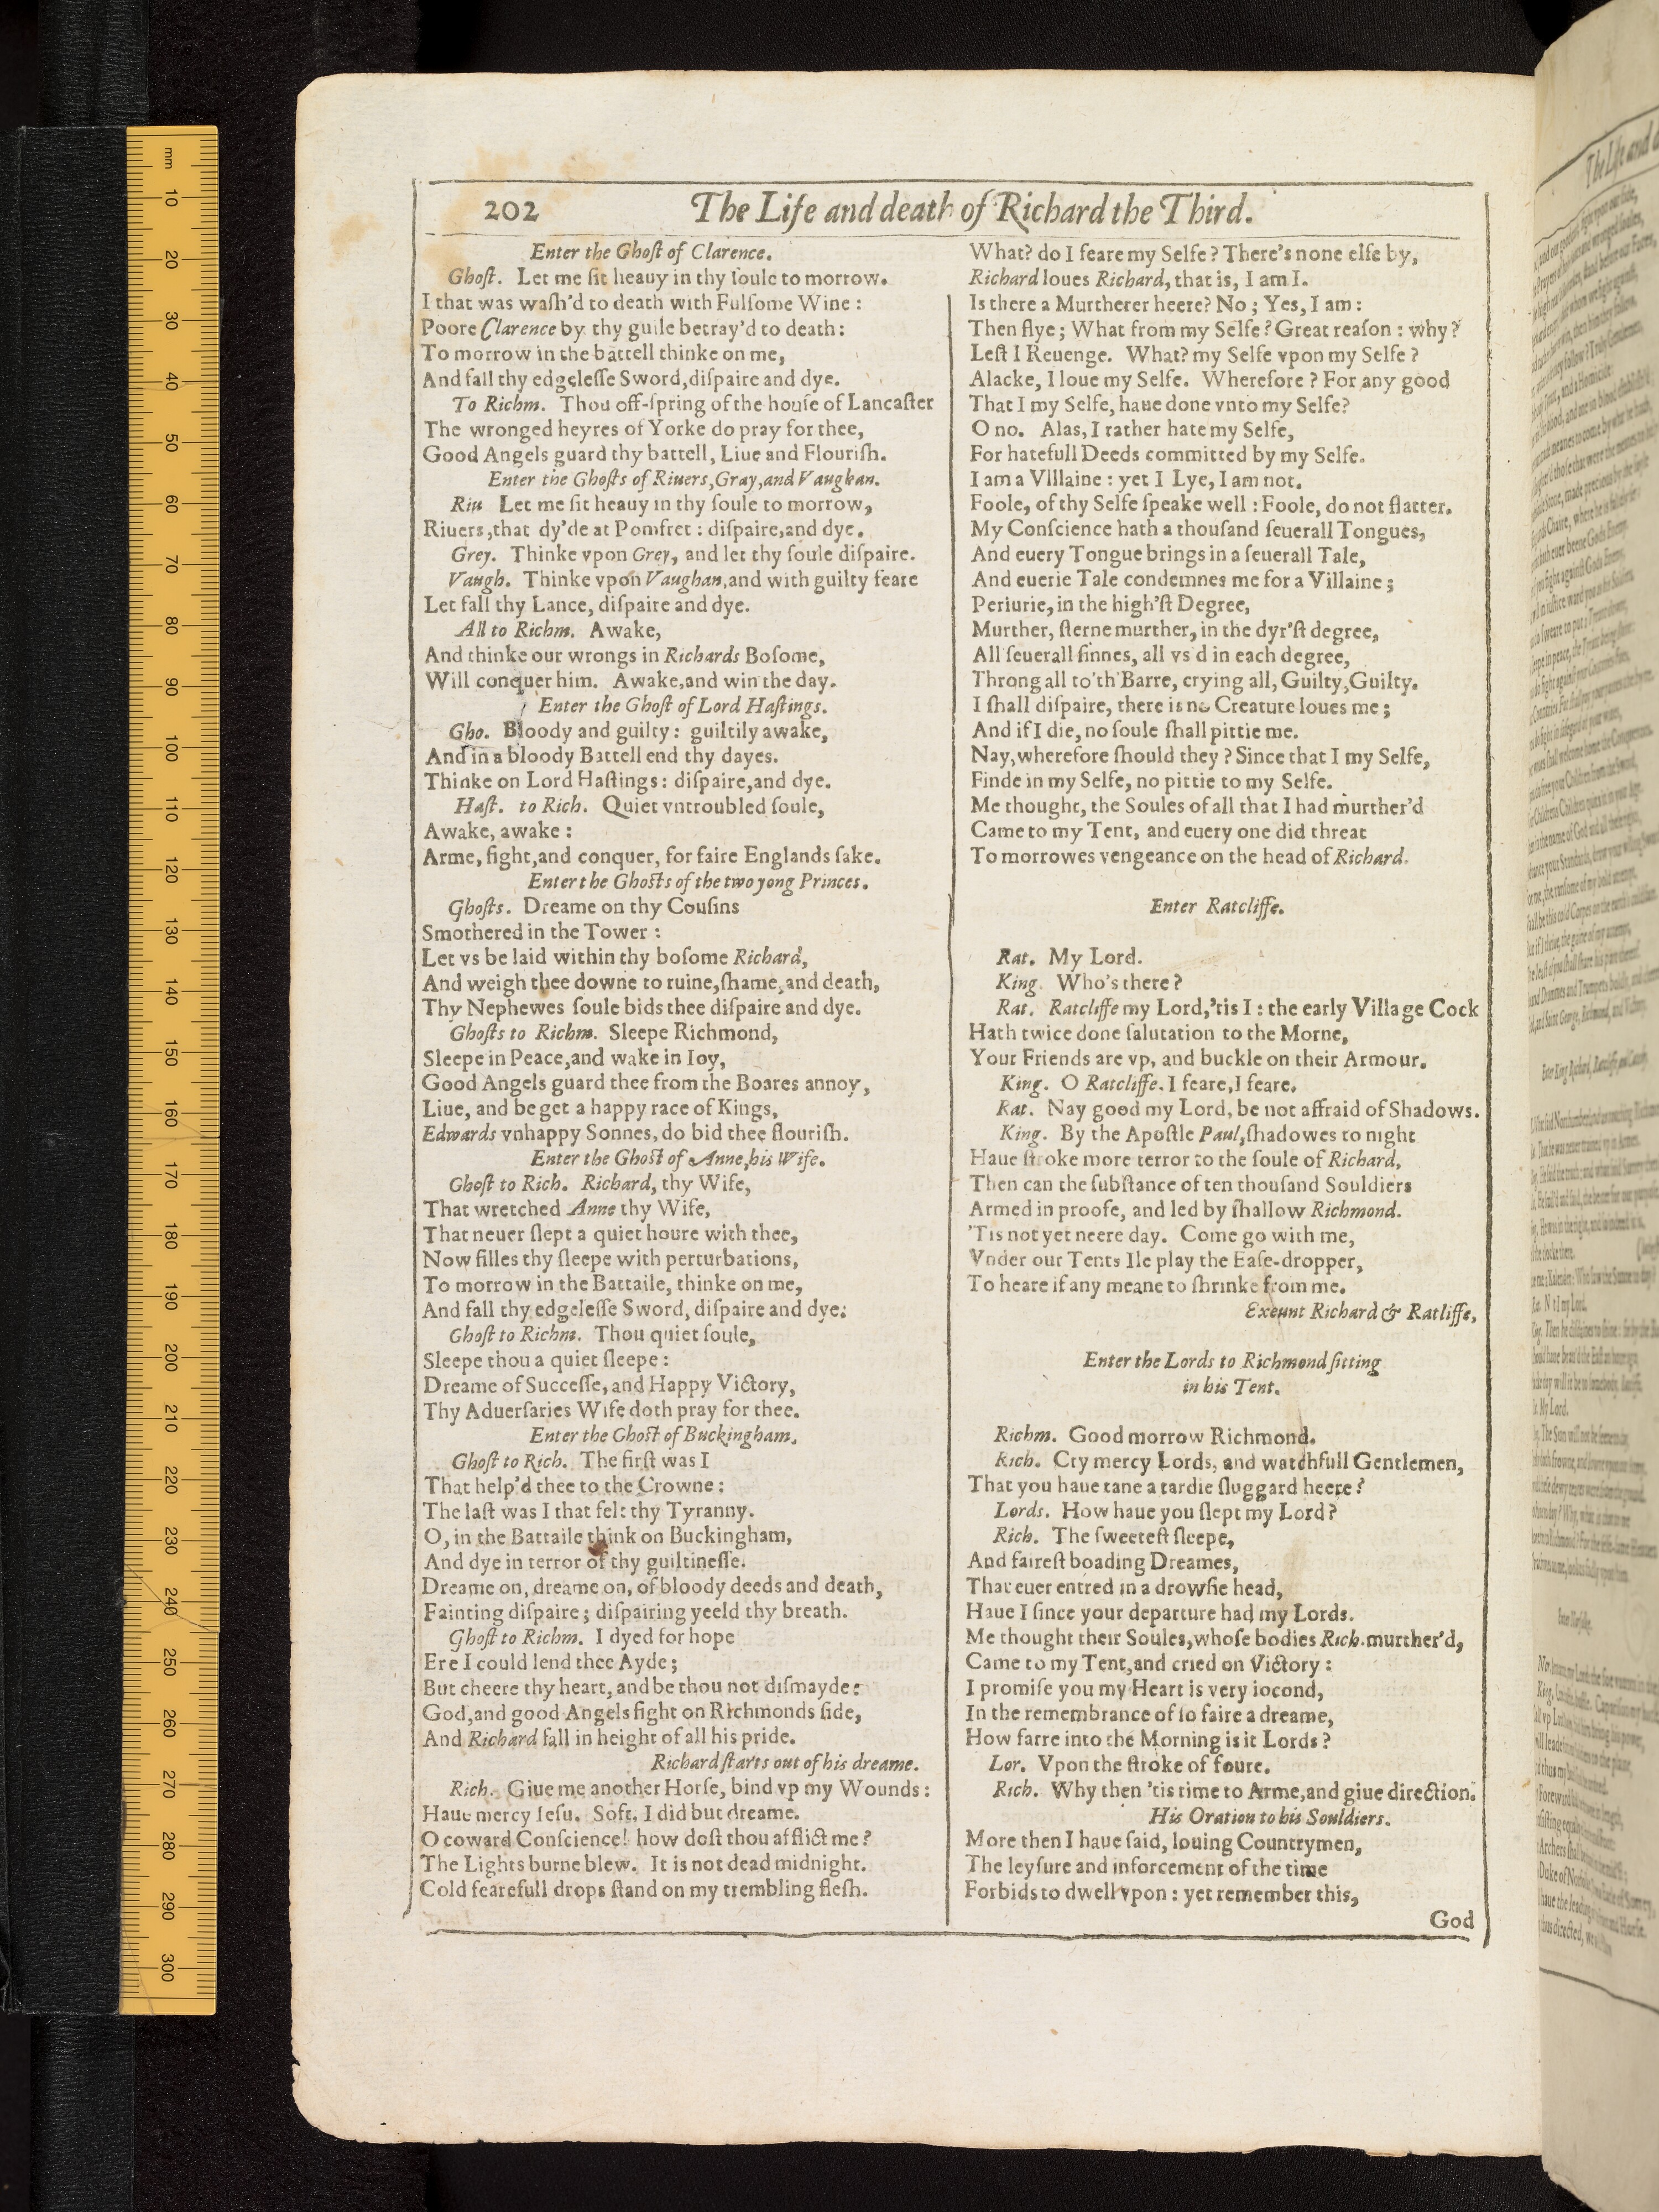 mm
10
20
30
40
50
60
70
80
90
100
110
120
130
140
150
160
170
180
190
200
210
220
230
240
250
260
270
280
290
300
202
The Life and death of Richard the Third.
Enter the Ghoſt of Clarence.
Ghoſt. Let me ſit heauy in thy ſoule to morrow.
I that was waſh'd to death with Fulſome Wine :
Poore Clarence by thy guile betray'd to death :
To morrow in the battell thinke on me,
And fall thy edgeleſſe Sword, diſpaire and dye.
To Richm. Thou off-ſpring of the houſe of Lancaſter
The wronged heyres of Yorke do pray for thee,
Good Angels guard thy battell, Liue and Flouriſh.
Enter the Ghoſts of Riuers, Gray, and Vaughan.
Riu Let me ſit heauy in thy ſoule to morrow,
Riuers, that dy'de at Pomfret : diſpaire, and dye.
Grey. Thinke vpon Grey, and let thy ſoule diſpaire.
Vaugh. Thinke vpon Vaughan, and with guilty feare
Let fall thy Lance, diſpaire and dye.
All to Richm. Awake,
And thinke our wrongs in Richards Boſome,
Will conquer him. Awake, and win the day.
Enter the Ghoſt of Lord Haſtings.
Gho. Bloody and guilty : guiltily awake,
And in a bloody Battell end thy dayes.
Thinke on Lord Haſtings : diſpaire, and dye.
Haſt. to Rich. Quiet vntroubled ſoule,
Awake, awake :
Arme, fight, and conquer, for faire Englands ſake.
Enter the Ghoſts of the two yong Princes.
Ghoſts. Dreame on thy Couſins
Smothered in the Tower :
Let vs be laid within thy boſome Richard,
And weigh thee downe to ruine, ſhame, and death,
Thy Nephewes ſoule bids thee diſpaire and dye.
Ghoſts to Richm. Sleepe Richmond,
Sleepe in Peace, and wake in Ioy,
Good Angels guard thee from the Boares annoy,
Liue, and beget a happy race of Kings,
Edwards vnhappy Sonnes, do bid thee flouriſh.
Enter the Ghoſt of Anne, his Wife.
Ghoſt to Rich. Richard, thy Wife,
That wretched Anne thy Wife,
That neuer ſlept a quiet houre with thee,
Now filles thy ſleepe with perturbations,
To morrow in the Battaile, thinke on me,
And fall thy edgeleſſe Sword, diſpaire and dye:
Ghoſt to Richm. Thou quiet ſoule,
Sleepe thou a quiet ſleepe :
Dreame of Succeſſe, and Happy Victory,
Thy Aduerſaries Wife doth pray for thee.
Enter the Ghoſt of Buckingham.
Ghoſt to Rich. The firſt was I
That help'd thee to the Crowne :
The laſt was I that felt thy Tyranny.
O, in the Battaile think on Buckingham,
And dye in terror of thy guiltineſſe.
Dreame on, dreame on, of bloody deeds and death,
Fainting diſpaire ; diſpairing yeeld thy breath.
Ghoſt to Richm. I dyed for hope
Ere I could lend thee Ayde ;
But cheere thy heart, and be thou not diſmayde :
God, and good Angels fight on Richmonds ſide,
And Richard fall in height of all his pride.
Richard ſtarts out of his dreame.
Rich. Giue me another Horſe, bind vp my Wounds :
Haue mercy Ieſu. Soft, I did but dreame.
O coward Conſcience! how doſt thou afflict me ?
The Lights burne blew. It is not dead midnight.
Cold fearefull drops ſtand on my trembling fleſh.
What? do I feare my Selfe ? There's none elſe by,
Richard loues Richard, that is, I am I.
Is there a Murtherer heere? No ; Yes, I am :
Then flye ; What from my Selfe ? Great reaſon : why ?
Leſt I Reuenge. What? my Selfe vpon my Selfe ?
Alacke, I loue my Selfe. Wherefore ? For any good
That I my Selfe, haue done vnto my Selfe?
O no. Alas, I rather hate my Selfe,
For hatefull Deeds committed by my Selfe.
I am a Villaine : yet I Lye, I am not.
Foole, of thy Selfe ſpeake well : Foole, do not flatter.
My Conſcience hath a thouſand ſeuerall Tongues,
And euery Tongue brings in a ſeuerall Tale,
And euerie Tale condemnes me for a Villaine ;
Periurie, in the high'ſt Degree,
Murther, ſterne murther, in the dyr'ſt degree,
All ſeuerall ſinnes, all vs'd in each degree,
Throng all to'th'Barre, crying all, Guilty, Guilty.
I ſhall diſpaire, there is no Creature loues me ;
And if I die, no ſoule ſhall pittie me.
Nay, wherefore ſhould they ? Since that I my Selfe,
Finde in my Selfe, no pittie to my Selfe.
Me thought, the Soules of all that I had murther'd
Came to my Tent, and euery one did threat
To morrowes vengeance on the head of Richard.
Enter Ratcliffe.
Rat. My Lord.
King. Who's there ?
Rat. Ratcliffe my Lord, 'tis I : the early Village Cock
Hath twice done ſalutation to the Morne,
Your Friends are vp, and buckle on their Armour.
King. O Ratcliffe. I feare, I feare.
Rat. Nay good my Lord, be not affraid of Shadows.
King. By the Apoſtle Paul, ſhadowes to night
Haue ſtroke more terror to the ſoule of Richard,
Then can the ſubſtance of ten thouſand Souldiers
Armed in proofe, and led by ſhallow Richmond.
'Tis not yet neere day. Come go with me,
Vnder our Tents Ile play the Eaſe-dropper,
To heare if any meane to ſhrinke from me.
Exeunt Richard & Ratliffe,
Enter the Lords to Richmond ſitting
in his Tent.
Richm. Good morrow Richmond.
Rich. Cry mercy Lords, and watchfull Gentlemen,
That you haue tane a tardie ſluggard heere ?
Lords. How haue you ſlept my Lord ?
Rich. The ſweeteſt ſleepe,
And faireſt boading Dreames,
That euer entred in a drowſie head,
Haue I ſince your departure had my Lords.
Me thought their Soules, whoſe bodies Rich. murther'd,
Came to my Tent, and cried on Victory :
I promiſe you my Heart is very iocond,
In the remembrance of ſo faire a dreame,
How farre into the Morning is it Lords ?
Lor. Vpon the ſtroke of foure.
Rich. Why then 'tis time to Arme, and giue direction.
His Oration to his Souldiers.
More then I haue ſaid, louing Countrymen,
The leyſure and inforcement of the time
Forbids to dwell vpon : yet remember this,
God
The Life and d